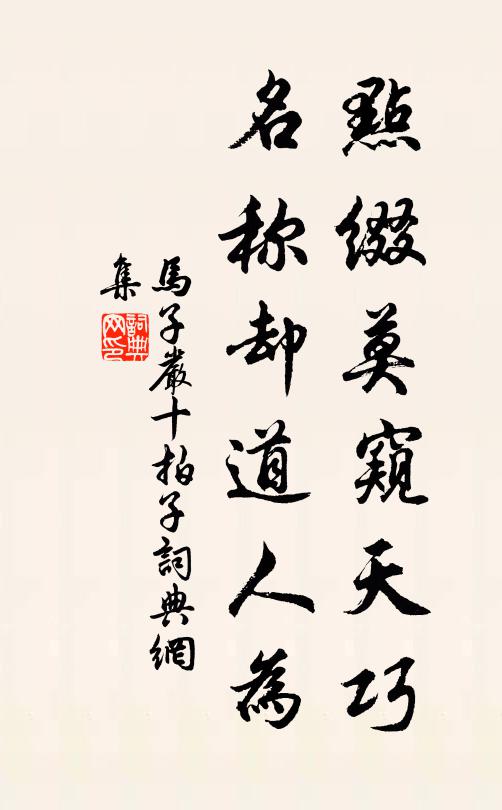 點綴莫窺天巧
名称却道人為
馬子嚴十拍子詞典網
集
詞典
网印